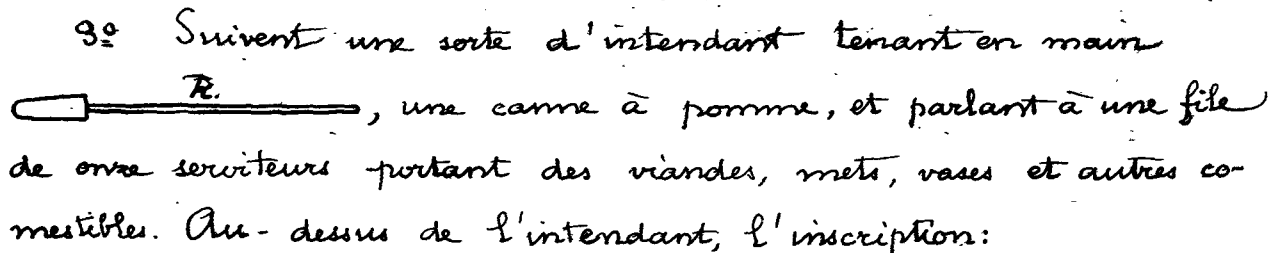 3º Suivent une sorte d'intendant tenant en main
R.
, une canne à pomme, et parlant à une file
de onze serviteurs portant des viandes, mets, vases et autres co-
mestibles. Au-dessus de l'intendant, l'inscription: